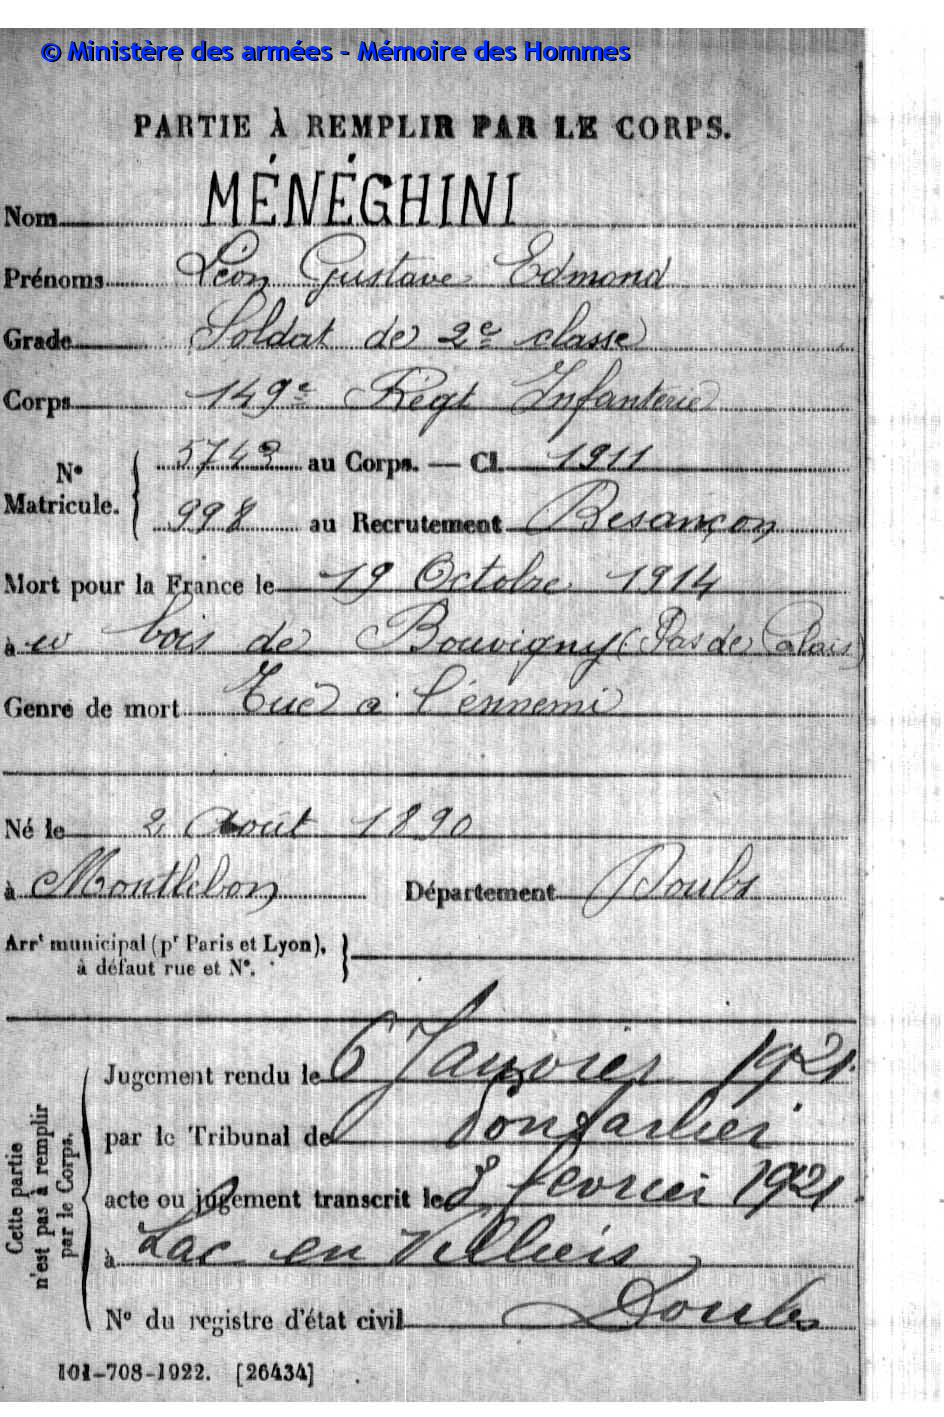 © Ministère des armées - Mémoire des Hommes
PARTIE À REMPLIR PAR LE CORPS.
Nom MÉNÉGHINI
Prénoms Léon Gustave Edmond
Grade Soldat de 2e classe
Corps 149e Régt Infanterie
N° Matricule. { 5743 au Corps. — Cl. 1911
998 au Recrutement Besançon
Mort pour la France le 19 Octobre 1914
à bois de Bouvigny (Pas de Calais)
Genre de mort Tué à l'énnemi
Né le 2 Août 1890
à Montlebon Département Doubs
Arrt municipal (pr Paris et Lyon),
à défaut rue et N°.
Cette partie
n'est pas à remplir
par le Corps.
Jugement rendu le 6 Janvier 1921.
par le Tribunal de Pontarlier
acte ou jugement transcrit le février 1921.
à Lac en Villiers
N° du registre d'état civil Doubs
101-708-1922. [26434]